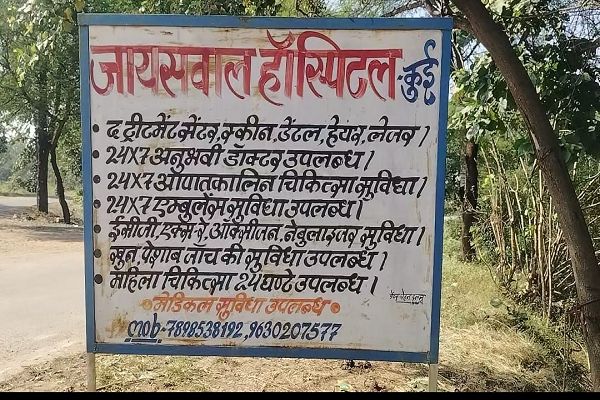 जायसवाल हॉस्पिटल-कुई
• द ट्रीटमेंट सेंटर, स्कीन, डेंटल, हेयर, लेजर।
• 24x7 अनुभवी डॉक्टर उपलब्ध।
• 24x7 आपातकालिन चिकित्सा सुविधा।
• 24x7 एम्बुलेंस सुविधा उपलब्ध।
• ईसीजी, एक्स-रे, ऑक्सीजन, नेबुलाइजर सुविधा।
• खुन, पेशाब जाँच की सुविधा उपलब्ध।
• महिला चिकित्सा 24 घण्टे उपलब्ध।
मेडिकल सुविधा उपलब्ध
mob-7898538192, 9630207577